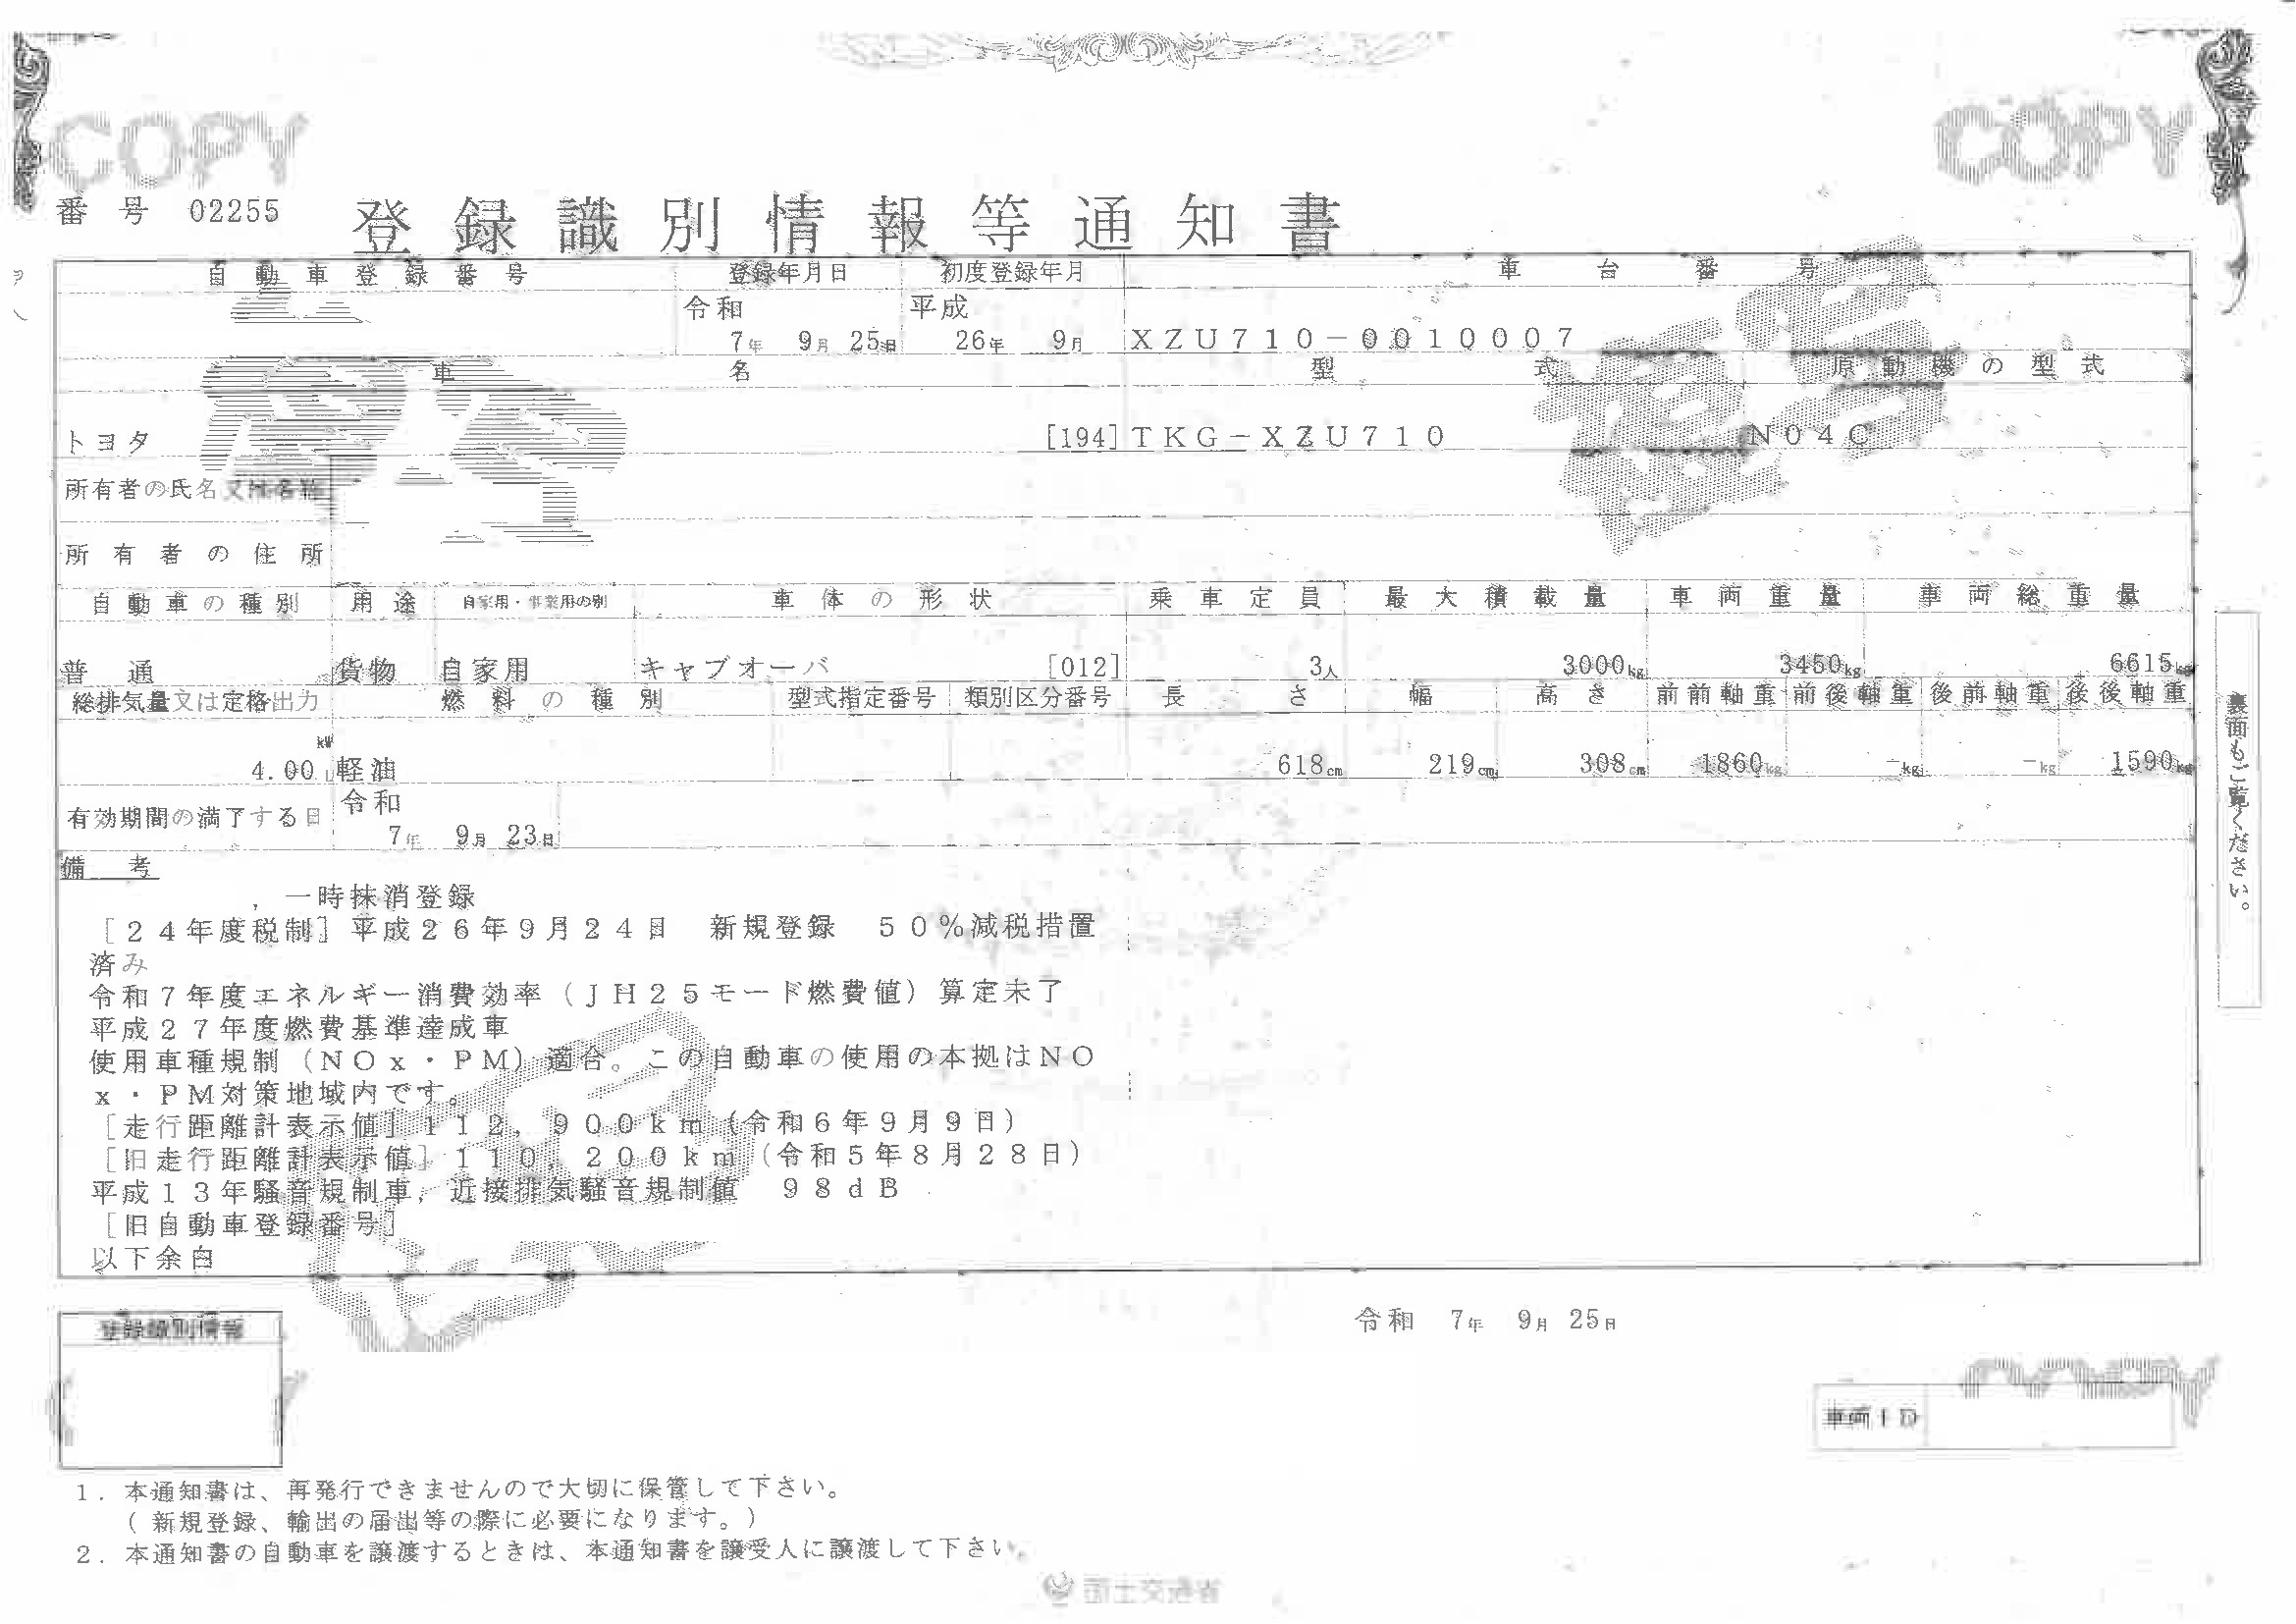 COPY
COPY
番号 02255
登録識別情報等通知書
自動車登録番号 登録年月日 初度登録年月 車台番号
令和 平成
7年 9月 25日 26年 9月 XZU710-0010007
車名 型式 原動機の型式
トヨタ [194] TKG-XZU710 N04C
所有者の氏名又は名称
所有者の住所
自動車の種別 用途 自家用・事業用の別 車体の形状 乗車定員 最大積載量 車両重量 車両総重量
普通 貨物 自家用 キャブオーバ [012] 3人 3000kg 3450kg 6615kg
総排気量又は定格出力 燃料の種別 型式指定番号 類別区分番号 長さ 幅 高さ 前前軸重 前後軸重 後前軸重 後後軸重
kW
4.00 L 軽油 618cm 219cm 308cm 1860kg -kg -kg 1590kg
有効期間の満了する日 令和
7年 9月 23日
備考
，一時抹消登録
［２４年度税制］平成２６年９月２４日　新規登録　５０％減税措置
済み
令和７年度エネルギー消費効率（ＪＨ２５モード燃費値）算定未了
平成２７年度燃費基準達成車
使用車種規制（ＮＯｘ・ＰＭ）適合。この自動車の使用の本拠はＮＯ
ｘ・ＰＭ対策地域内です。
［走行距離計表示値］１１２，９００ｋｍ（令和６年９月９日）
［旧走行距離計表示値］１１０，２００ｋｍ（令和５年８月２８日）
平成１３年騒音規制車，近接排気騒音規制値　９８ｄＢ
［旧自動車登録番号］
以下余白
裏面もご覧ください。
令和 7年 9月 25日
登録識別情報
COPY
車両ＩＤ
１．本通知書は、再発行できませんので大切に保管して下さい。
（新規登録、輸出の届出等の際に必要になります。）
２．本通知書の自動車を譲渡するときは、本通知書を譲受人に譲渡して下さい。
国土交通省